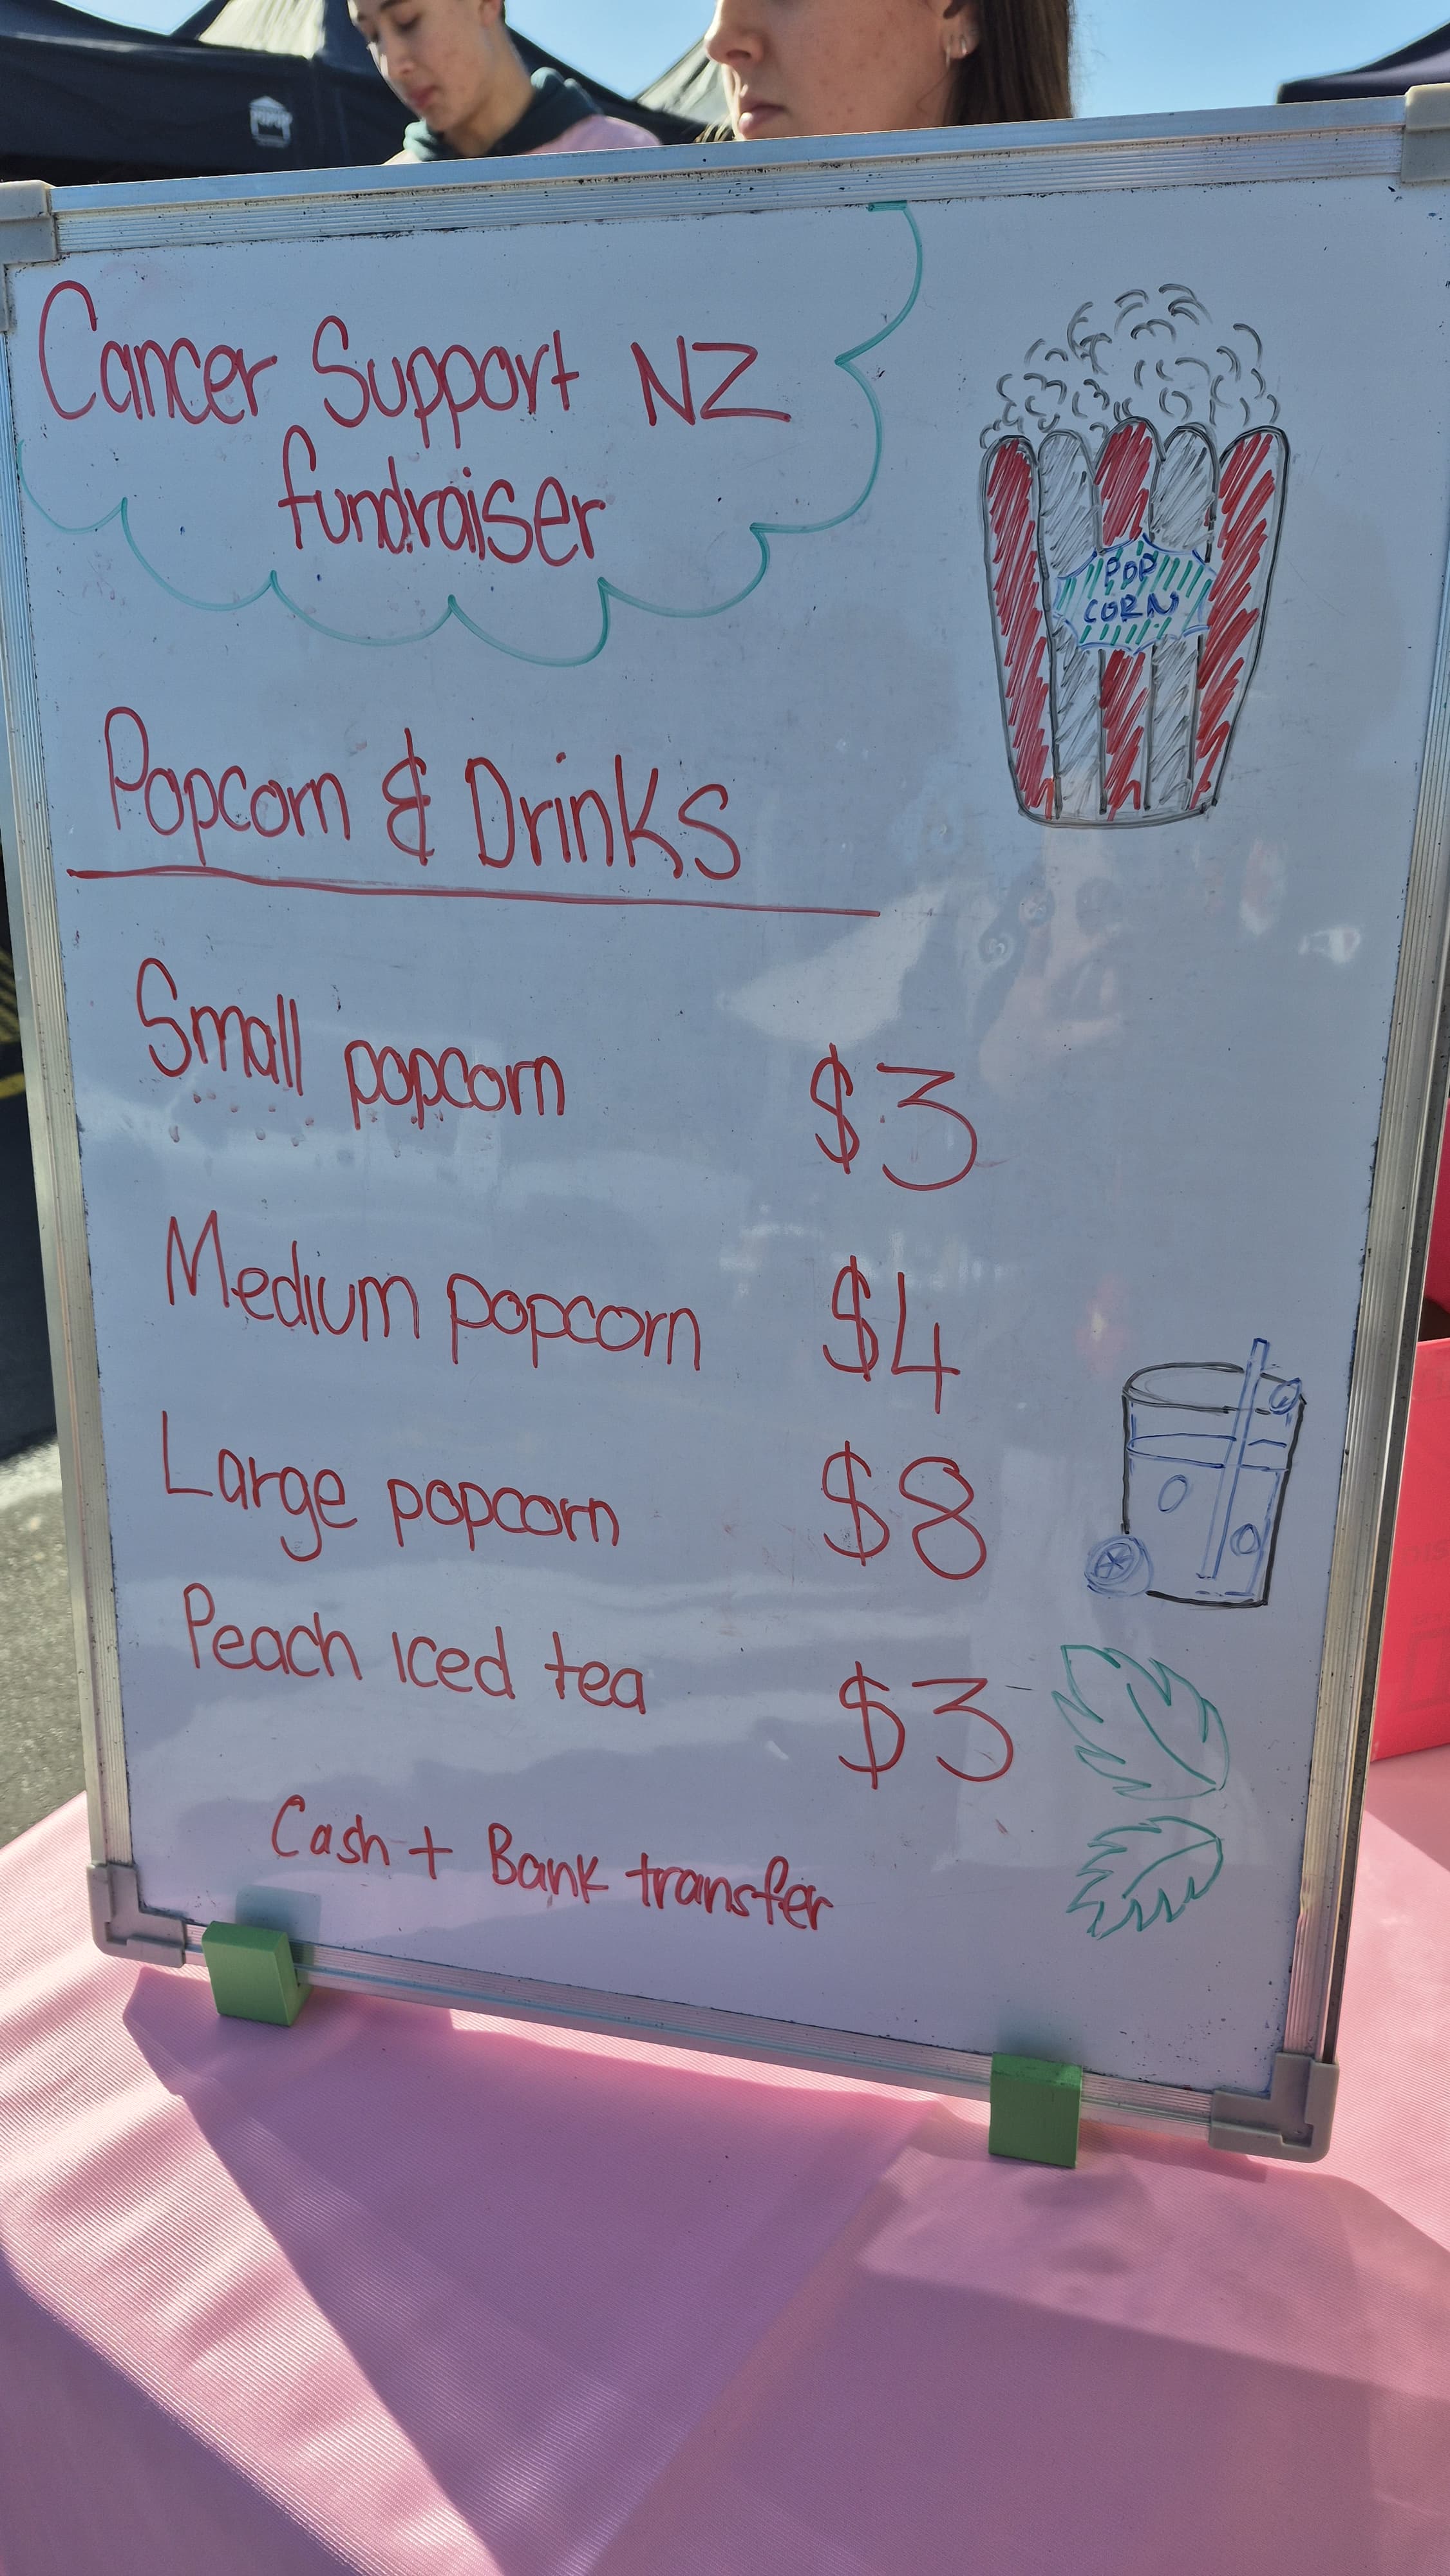 Cancer Support NZ
fundraiser
POP
CORN
Popcorn & Drinks
Small popcorn $3
Medium popcorn $4
Large popcorn $8
Peach iced tea $3
Cash + Bank transfer